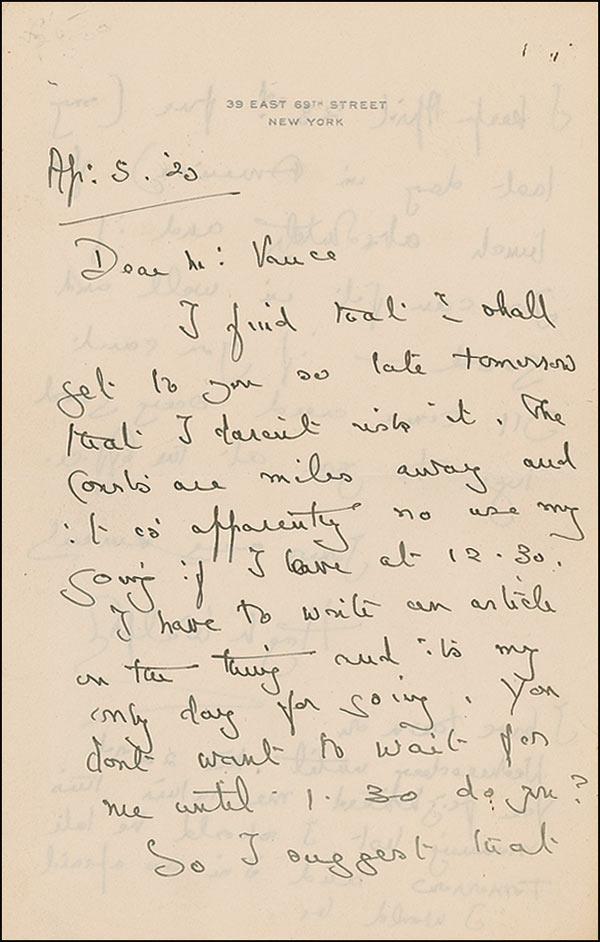 39 EAST 69TH STREET
NEW YORK
Ap: 5. '20
Dear Mr: Vance
I find that I shall
get to you so late tomorrow
that I daren't risk it. The
Courts are miles away and
it is apparently no use my
going if I leave at 12.30.
I have to write an article
on the thing and it's my
only day for going. You
dont want to wait for
me until 1.30 do you?
So I suggest that